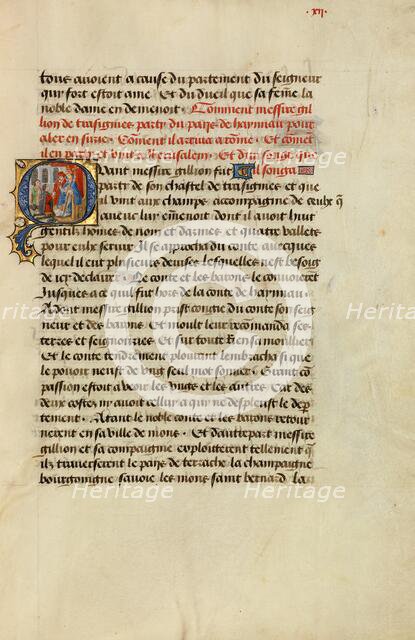 ·xii·
tous avoient a cause du partement du seigneur
qui fort estoit ame Et du dueil que sa femme la
noble dame en demenoit · Comment messire gil
lion de trasignies party du païs de haynnau pour
aler en surie · Comment il arriva a romme · Et comment
il en party et vint en iherusalem · Et du songe que
Quant messire gillion fut il songa
party de son chastel de trasignies et que
il vint aux champs acompaigne de ceulx q̄
avecuc lui emenoit dont il avoit huit
gentilz homes de nom et darmes et quatre varletz
pour eulx servir Il se aprocha du conte avecques
lequel il eut pluiseurs devises lesquelles nest besoing
de icy declairer Le conte et les barons le convoierent
Jusques a ce quil fut hors de la conte de haynnau ·
Adont messire gillion prist congie du conte son seig
neur et des barons Et moult leur recomanda ses
terres et seignouries Et sur toute Rien sa moillier
Et le conte tendrement plourant lembracha si que
le povoir neust de ung seul mot sonner · Grant com
passion estoit a veoir les ungs et les autres Car des
deux costez ny avoit cellui a qui ne despleust le depar
tement · Atant le noble conte et les barons retour
nerent en sa ville de mons · Et dautrepart messire
gillion et sa compaignie exploitterent tellement q̄
ilz traverserent le païs de terrache la champaigne
bourgoingne savoie les mons saint bernard la
Heritage
Heritage
Heritage
Heritage
Heritage
Heritage